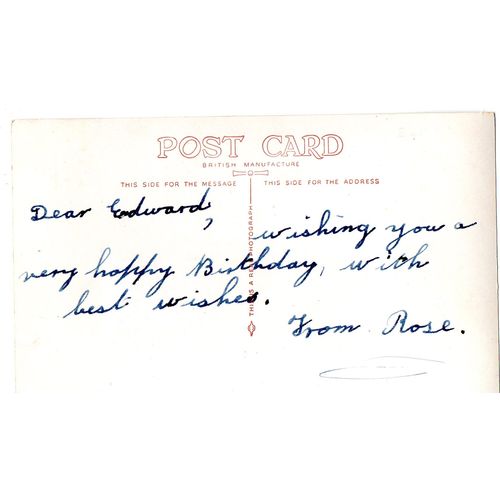 POST CARD
BRITISH MANUFACTURE
THIS SIDE FOR THE MESSAGE
THIS SIDE FOR THE ADDRESS
THIS IS A REAL PHOTOGRAPH
Dear Edward,
wishing you a
very happy Birthday, with
best wishes.
From Rose.